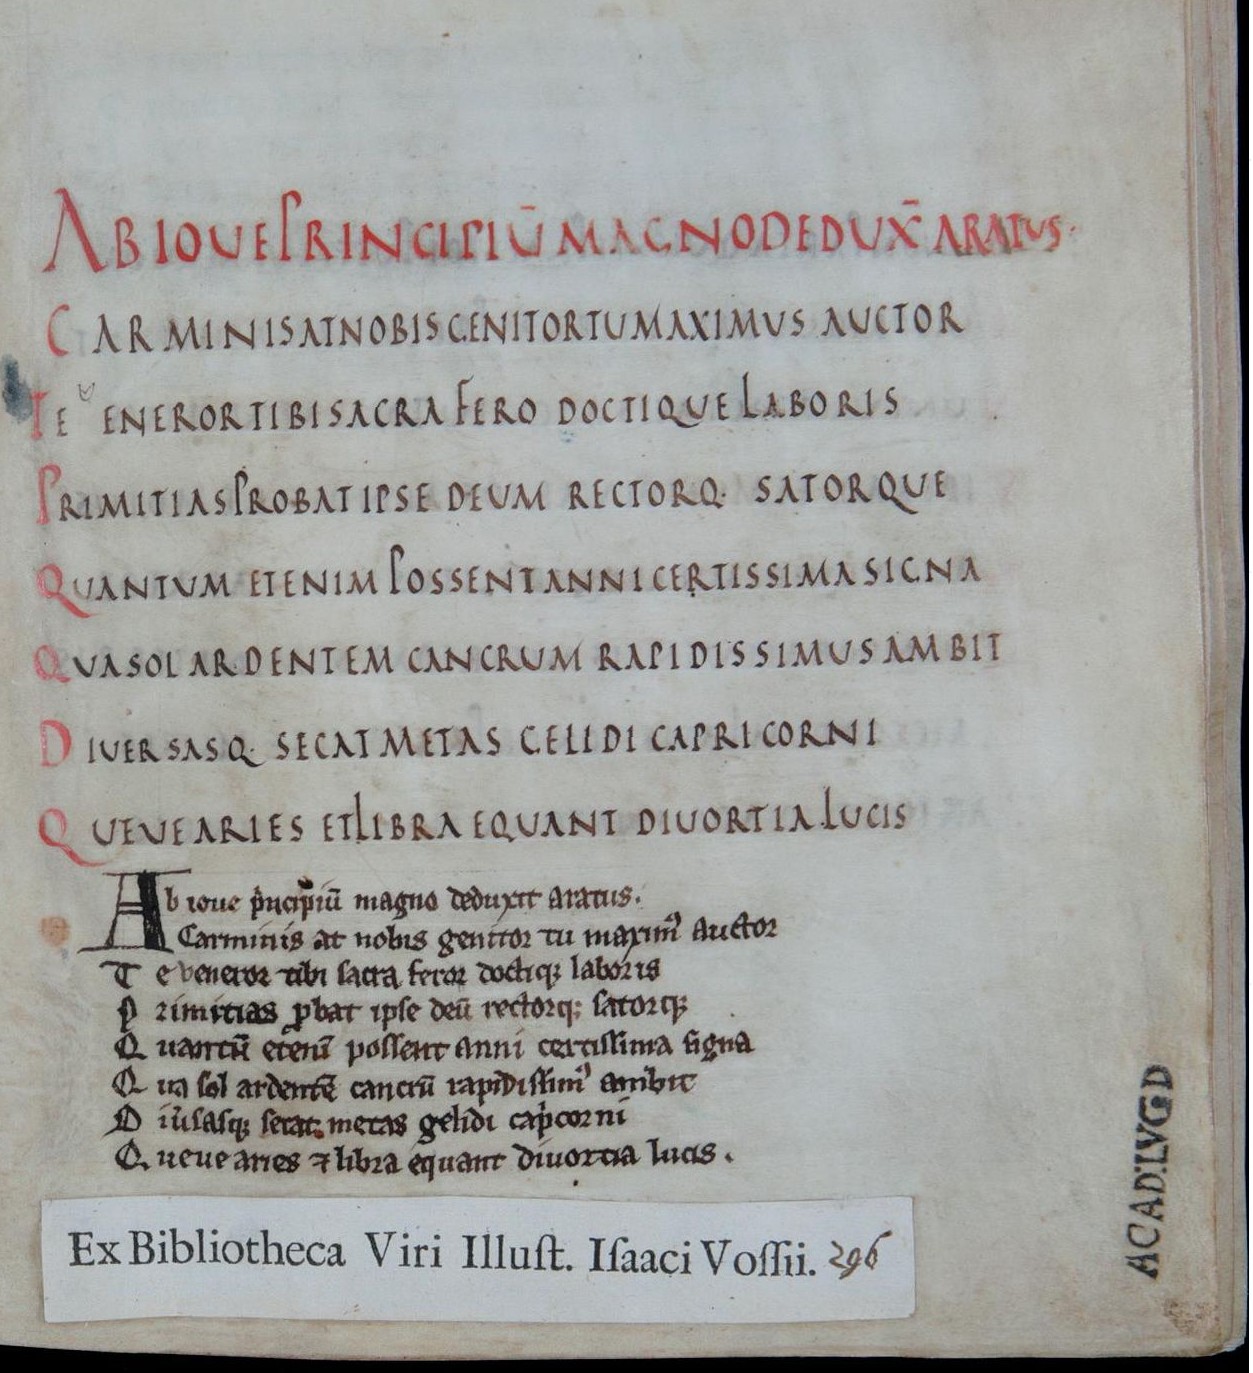 ABIOUEPRINCIPIŪ MAGNODEDUX̄ ARATUS·
CARMINISATNOBISGENITORTUMAXIMUS AUCTOR
TE VENERORTIBISACRA FERO DOCTIQUE LABORIS
PRIMITIASPROBATIPSE DEUM RECTORQ· SATORQUE
QUANTVM ETENIM POSSENTANNICERTISSIMASIGNA
QVASOL ARDENTEM CANCRUM RAPIDISSIMUSAMBIT
DIVERSASQ· SECATMETAS GELIDI CAPRICORNI
QUEVEARIES ETLIBRA EQUANT DIUORTIALUCIS
Ab ioue p̍ncipiū magno deduxit aratus.
Carminis at nobis genitor tu maximꝰ auctor
Te veneror tibi sacra feror doctiqꝫ laboris
Primitias ꝓbat ipse deū rectorqꝫ satorqꝫ
Quantū etenī possent anni certissima signa
Qua sol ardentē cancrū rapidissimꝰ ambit
Diu͛sasqꝫ secat metas gelidi cap̍corni
Queue aries ⁊ libra equant diuortia lucis.
Ex Bibliotheca Viri Illuſt. Iſaaci Voſſii. 296
ACAD.LVGD